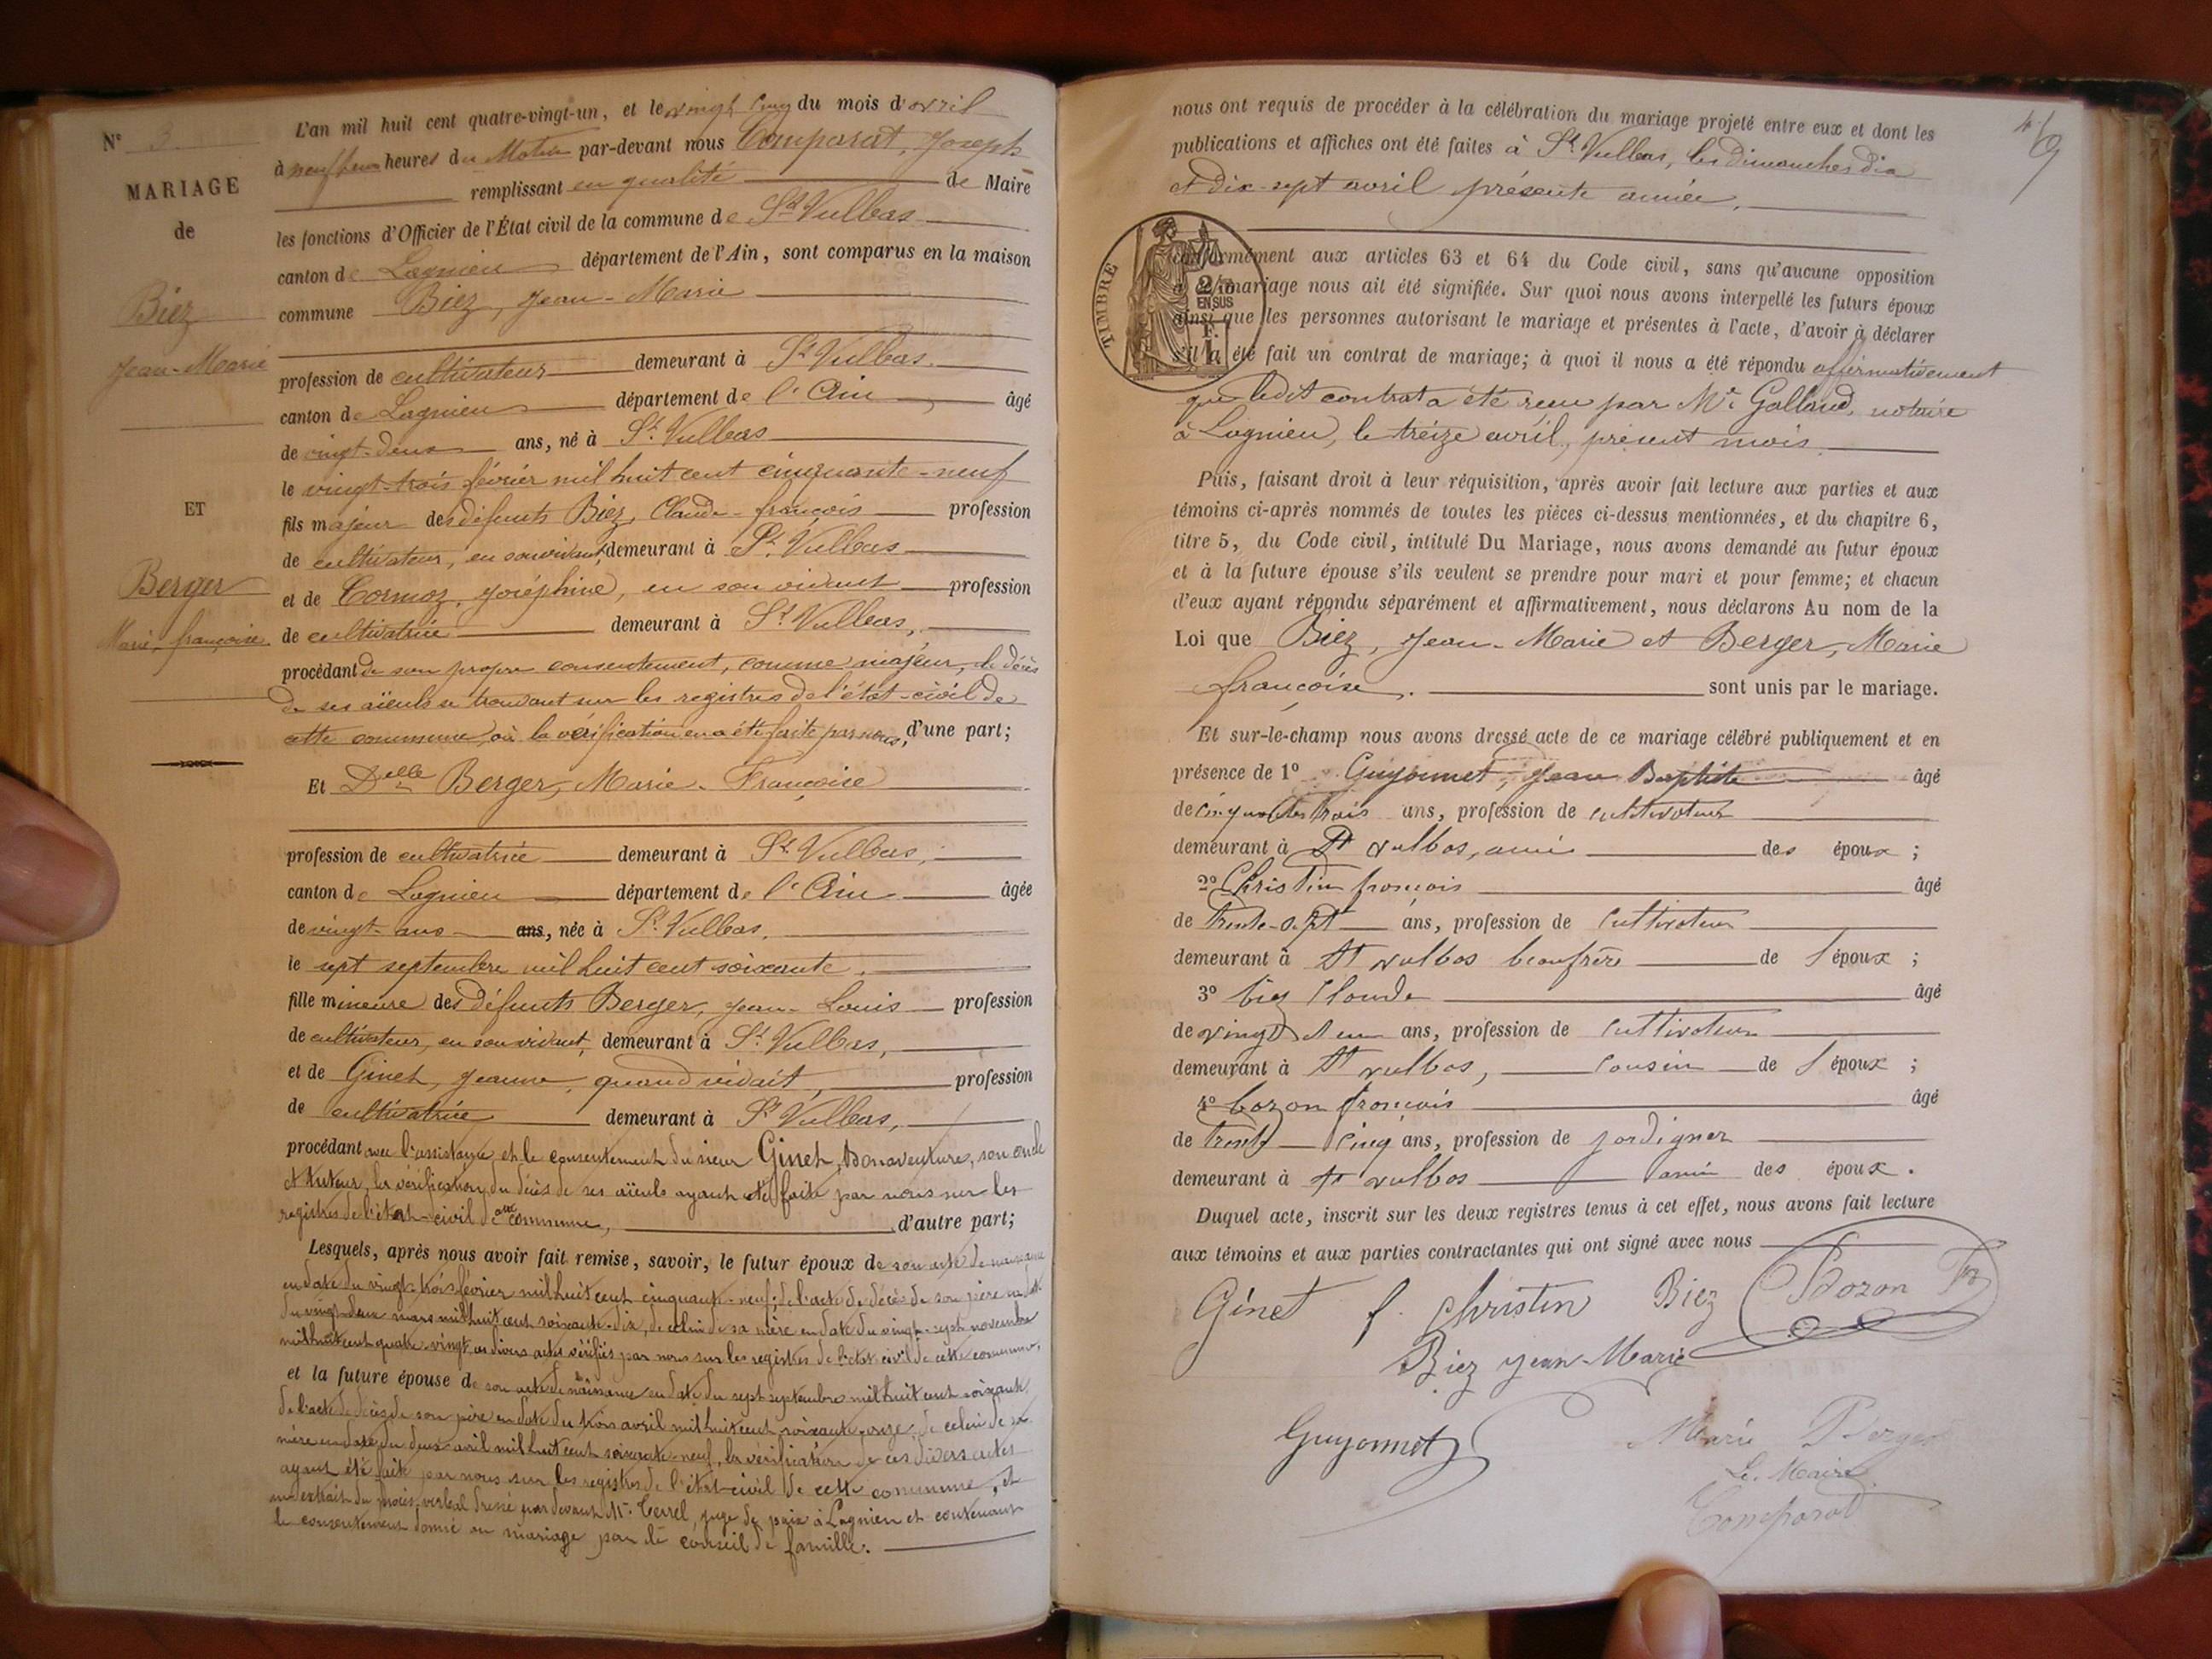 N° 3
MARIAGE
de
Biez
Jean-Marie
ET
Berger
Marie-françoise
L'an mil huit cent quatre-vingt-un, et le vingt cinq du mois d'avril
à neuf heures du Matin par-devant nous Comparat, Joseph
remplissant en qualité de Maire
les fonctions d'Officier de l'État civil de la commune de St Vulbas
canton de Lagnieu département de l'Ain, sont comparus en la maison
commune Biez, Jean-Marie
profession de cultivateur demeurant à St Vulbas.
canton de Lagnieu département de l'Ain âgé
de vingt-deux ans, né à St Vulbas
le vingt-trois février mil huit cent cinquante-neuf
fils majeur des défunts Biez, Claude-françois profession
de cultivateur, en son vivant, demeurant à St Vulbas
et de Cormoz, Joséphine, en son vivant profession
de cultivatrice demeurant à St Vulbas,
procédant de son propre consentement, comme majeur, le décès
de ses aïeuls se trouvant sur les registres de l'état-civil de
cette commune, où la vérification en a été faite par nous, d'une part;
Et Delle Berger, Marie-Françoise
profession de cultivatrice demeurant à St Vulbas,
canton de Lagnieu département de l'Ain âgée
de vingt ans ans, née à St Vulbas,
le sept septembre mil huit cent soixante.
fille mineure des défunts Berger, Jean-Louis profession
de cultivateur, en son vivant, demeurant à St Vulbas,
et de Ginet, Jeanne, quand vivait, profession
de cultivatrice demeurant à St Vulbas,
procédant avec l'assistance et le consentement du sieur Ginet, Bonaventure, son oncle
et tuteur, la vérification du décès de ses aïeuls ayant été faite par nous sur les
registres de l'état-civil de cette commune, d'autre part;
Lesquels, après nous avoir fait remise, savoir, le futur époux de son acte de naissance
en date du vingt-trois février mil huit cent cinquante-neuf; de l'acte de décès de son père en date
du vingt-deux mars mil huit cent soixante-dix, de celui de sa mère en date du vingt-sept novembre
mil huit cent quatre-vingt, ces divers actes vérifiés par nous sur les registres de l'état civil de cette commune,
et la future épouse de son acte de naissance en date du sept septembre mil huit cent soixante,
de l'acte de décès de son père en date du trois avril mil huit cent soixante-onze, de celui de sa
mère en date du deux avril mil huit cent soixante-neuf, la vérification de ces divers actes
ayant été faite par nous sur les registres de l'état-civil de cette commune, et
un extrait du procès-verbal dressé par devant Mr Terrel, juge de paix à Lagnieu et contenant
le consentement donné au mariage par le conseil de famille.
49
nous ont requis de procéder à la célébration du mariage projeté entre eux et dont les
publications et affiches ont été faites à St Vulbas, les dimanches dix
et dix-sept avril présente année,
TIMBRE
2/10
EN SUS
conformément aux articles 63 et 64 du Code civil, sans qu'aucune opposition
à ce mariage nous ait été signifiée. Sur quoi nous avons interpellé les futurs époux
ainsi que les personnes autorisant le mariage et présentes à l'acte, d'avoir à déclarer
s'il a été fait un contrat de mariage; à quoi il nous a été répondu affirmativement
que ledit contrat a été reçu par Me Galland, notaire
à Lagnieu, le treize avril, présent mois.
Puis, faisant droit à leur réquisition, après avoir fait lecture aux parties et aux
témoins ci-après nommés de toutes les pièces ci-dessus mentionnées, et du chapitre 6,
titre 5, du Code civil, intitulé Du Mariage, nous avons demandé au futur époux
et à la future épouse s'ils veulent se prendre pour mari et pour femme; et chacun
d'eux ayant répondu séparément et affirmativement, nous déclarons Au nom de la
Loi que Biez, Jean-Marie et Berger, Marie
françoise, sont unis par le mariage.
Et sur-le-champ nous avons dressé acte de ce mariage célébré publiquement et en
présence de 1° Guyonnet, Jean Baptiste âgé
de cinquante trois ans, profession de cultivateur
demeurant à St vulbas, ami des époux;
2° Christin françois âgé
de trente-sept ans, profession de cultivateur
demeurant à St vulbas beaufrère de l'époux;
3° biez Claude âgé
de vingt et un ans, profession de cultivateur
demeurant à St vulbas, cousin de l'époux;
4° bozon françois âgé
de trente cinq ans, profession de jardigner
demeurant à St vulbas ami des époux.
Duquel acte, inscrit sur les deux registres tenus à cet effet, nous avons fait lecture
aux témoins et aux parties contractantes qui ont signé avec nous
Ginet f. Christin Biez Bozon
Biez Jean-Marie
Guyonnet Marie Berger
Le Maire
Comparat